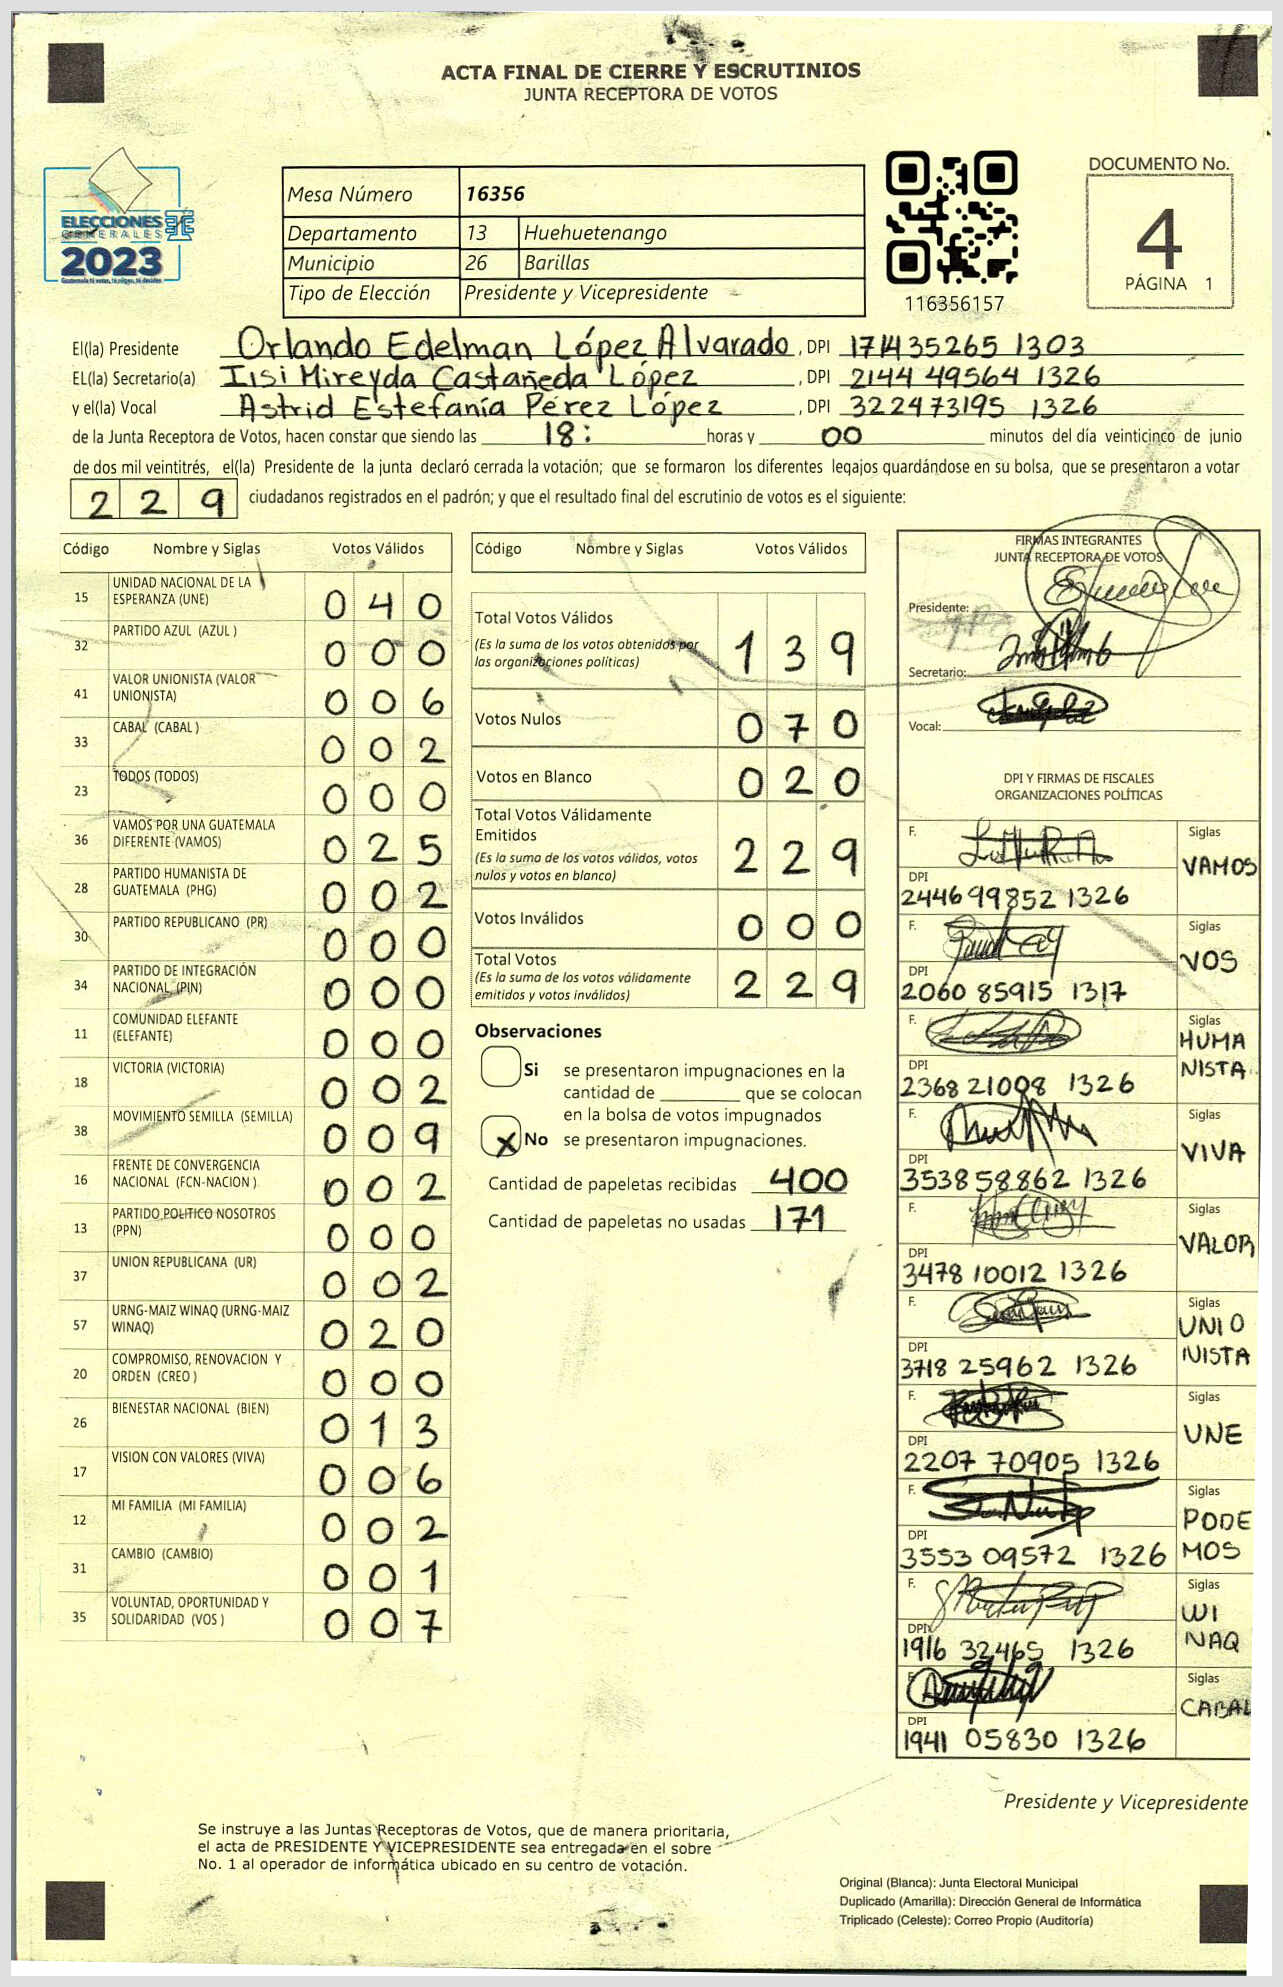 ACTA FINAL DE CIERRE Y ESCRUTINIOS
JUNTA RECEPTORA DE VOTOS
ELECCIONES
GENERALES
2023
Guatemala tú votas, tú eliges, tú decides
Mesa Número 16356
Departamento 13 Huehuetenango
Municipio 26 Barillas
Tipo de Elección Presidente y Vicepresidente
116356157
DOCUMENTO No.
4
PÁGINA 1
El(la) Presidente Orlando Edelman López Alvarado, DPI 171435265 1303
EL(la) Secretario(a) Iisi Mireyda Castañeda López, DPI 2144 49564 1326
y el(la) Vocal Astrid Estefanía Pérez López, DPI 322473195 1326
de la Junta Receptora de Votos, hacen constar que siendo las 18: horas y 00 minutos del día veinticinco de junio
de dos mil veintitrés, el(la) Presidente de la junta declaró cerrada la votación; que se formaron los diferentes legajos guardándose en su bolsa, que se presentaron a votar
229 ciudadanos registrados en el padrón; y que el resultado final del escrutinio de votos es el siguiente:
Código Nombre y Siglas Votos Válidos
15 UNIDAD NACIONAL DE LA ESPERANZA (UNE) 040
32 PARTIDO AZUL (AZUL ) 000
41 VALOR UNIONISTA (VALOR UNIONISTA) 006
33 CABAL (CABAL ) 002
23 TODOS (TODOS) 000
36 VAMOS POR UNA GUATEMALA DIFERENTE (VAMOS) 025
28 PARTIDO HUMANISTA DE GUATEMALA (PHG) 002
30 PARTIDO REPUBLICANO (PR) 000
34 PARTIDO DE INTEGRACIÓN NACIONAL (PIN) 000
11 COMUNIDAD ELEFANTE (ELEFANTE) 000
18 VICTORIA (VICTORIA) 002
38 MOVIMIENTO SEMILLA (SEMILLA) 009
16 FRENTE DE CONVERGENCIA NACIONAL (FCN-NACION ) 002
13 PARTIDO POLITICO NOSOTROS (PPN) 000
37 UNION REPUBLICANA (UR) 002
57 URNG-MAIZ WINAQ (URNG-MAIZ WINAQ) 020
20 COMPROMISO, RENOVACION Y ORDEN (CREO ) 000
26 BIENESTAR NACIONAL (BIEN) 013
17 VISION CON VALORES (VIVA) 006
12 MI FAMILIA (MI FAMILIA) 002
31 CAMBIO (CAMBIO) 001
35 VOLUNTAD, OPORTUNIDAD Y SOLIDARIDAD (VOS ) 007
Código Nombre y Siglas Votos Válidos
Total Votos Válidos 139
(Es la suma de los votos obtenidos por
las organizaciones políticas)
Votos Nulos 070
Votos en Blanco 020
Total Votos Válidamente
Emitidos 229
(Es la suma de los votos válidos, votos
nulos y votos en blanco)
Votos Inválidos 000
Total Votos 229
(Es la suma de los votos válidamente
emitidos y votos inválidos)
Observaciones
Si se presentaron impugnaciones en la
cantidad de ________ que se colocan
en la bolsa de votos impugnados
X No se presentaron impugnaciones.
Cantidad de papeletas recibidas 400
Cantidad de papeletas no usadas 171
FIRMAS INTEGRANTES
JUNTA RECEPTORA DE VOTOS
Presidente:
Secretario:
Vocal:
DPI Y FIRMAS DE FISCALES
ORGANIZACIONES POLÍTICAS
F. Siglas VAMOS
DPI
2446 99852 1326
F. Siglas VOS
DPI
2060 85915 1317
F. Siglas HUMA
NISTA
DPI
2368 21098 1326
F. Siglas VIVA
DPI
3538 58862 1326
F. Siglas VALOR
DPI
3478 10012 1326
F. Siglas UNIO
NISTA
DPI
3718 25962 1326
F. Siglas UNE
DPI
2207 70905 1326
F. Siglas PODE
MOS
DPI
3553 09572 1326
F. Siglas WI
NAQ
DPI
1916 32465 1326
F. Siglas CABAL
DPI
1941 05830 1326
Presidente y Vicepresidente
Se instruye a las Juntas Receptoras de Votos, que de manera prioritaria,
el acta de PRESIDENTE Y VICEPRESIDENTE sea entregada en el sobre
No. 1 al operador de informática ubicado en su centro de votación.
Original (Blanca): Junta Electoral Municipal
Duplicado (Amarilla): Dirección General de Informática
Triplicado (Celeste): Correo Propio (Auditoría)